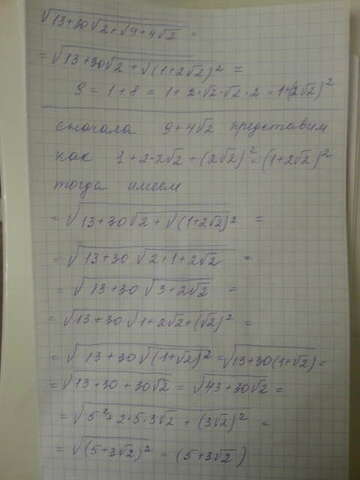 √13+30√2+√9+4√2 =
= √13+30√2+√(1+2√2)² =
9 = 1+8 = 1+2·√2·√2·2 = 1+(2√2)²
сначала 9+4√2 представим
как 1+2·2√2+(2√2)²=(1+2√2)²
тогда имеем
= √13+30√2+√(1+2√2)² =
= √13+30√2+1+2√2 =
= √13+30√3+2√2 =
= √13+30√1+2√2+(√2)² =
= √13+30√(1+√2)² = √13+30(1+√2) =
= √13+30+30√2 = √43+30√2 =
= √5²+2·5·3√2+(3√2)² =
= √(5+3√2)² = (5+3√2)